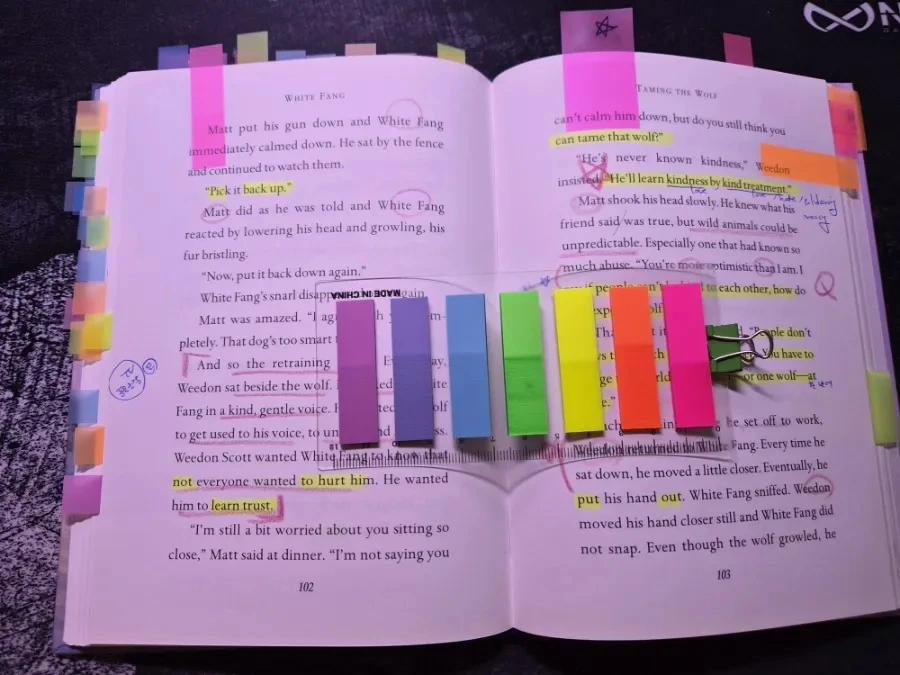 WHITE FANG
Matt put his gun down and White Fang
immediately calmed down. He sat by the fence
and continued to watch them.
"Pick it back up."
Matt did as he was told and White Fang
reacted by lowering his head and growling, his
fur bristling.
"Now, put it back down again."
White Fang's snarl again.
Matt was amazed.
pletely. That dog's too smart
And so the retraining
Weedon sat beside the wolf.
Fang in a kind, gentle voice.
to get used to his voice, to
Weedon Scott wanted White Fang to know that
not everyone wanted to hurt him. He wanted
him to learn trust.
"I'm still a bit worried about you sitting so
close," Matt said at dinner. "I'm not saying you
102
TAMING THE WOLF
can't calm him down, but do you still think you
can tame that wolf?"
"He's never known kindness," Weedon
insisted. "He'll learn kindness by kind treatment."
Matt shook his head slowly. He knew what his
friend said was true, but wild animals could be
unpredictable. Especially one that had known so
much abuse. "You're more optimistic than I am. I
if people to each other, how do
"People don't
You have to
or one wolf—at
he set off to work,
Weedon returned to White Fang. Every time he
sat down, he moved a little closer. Eventually, he
put his hand out. White Fang sniffed. Weedon
moved his hand closer still and White Fang did
not snap. Even though the wolf growled, he
103
MADE IN CHINA